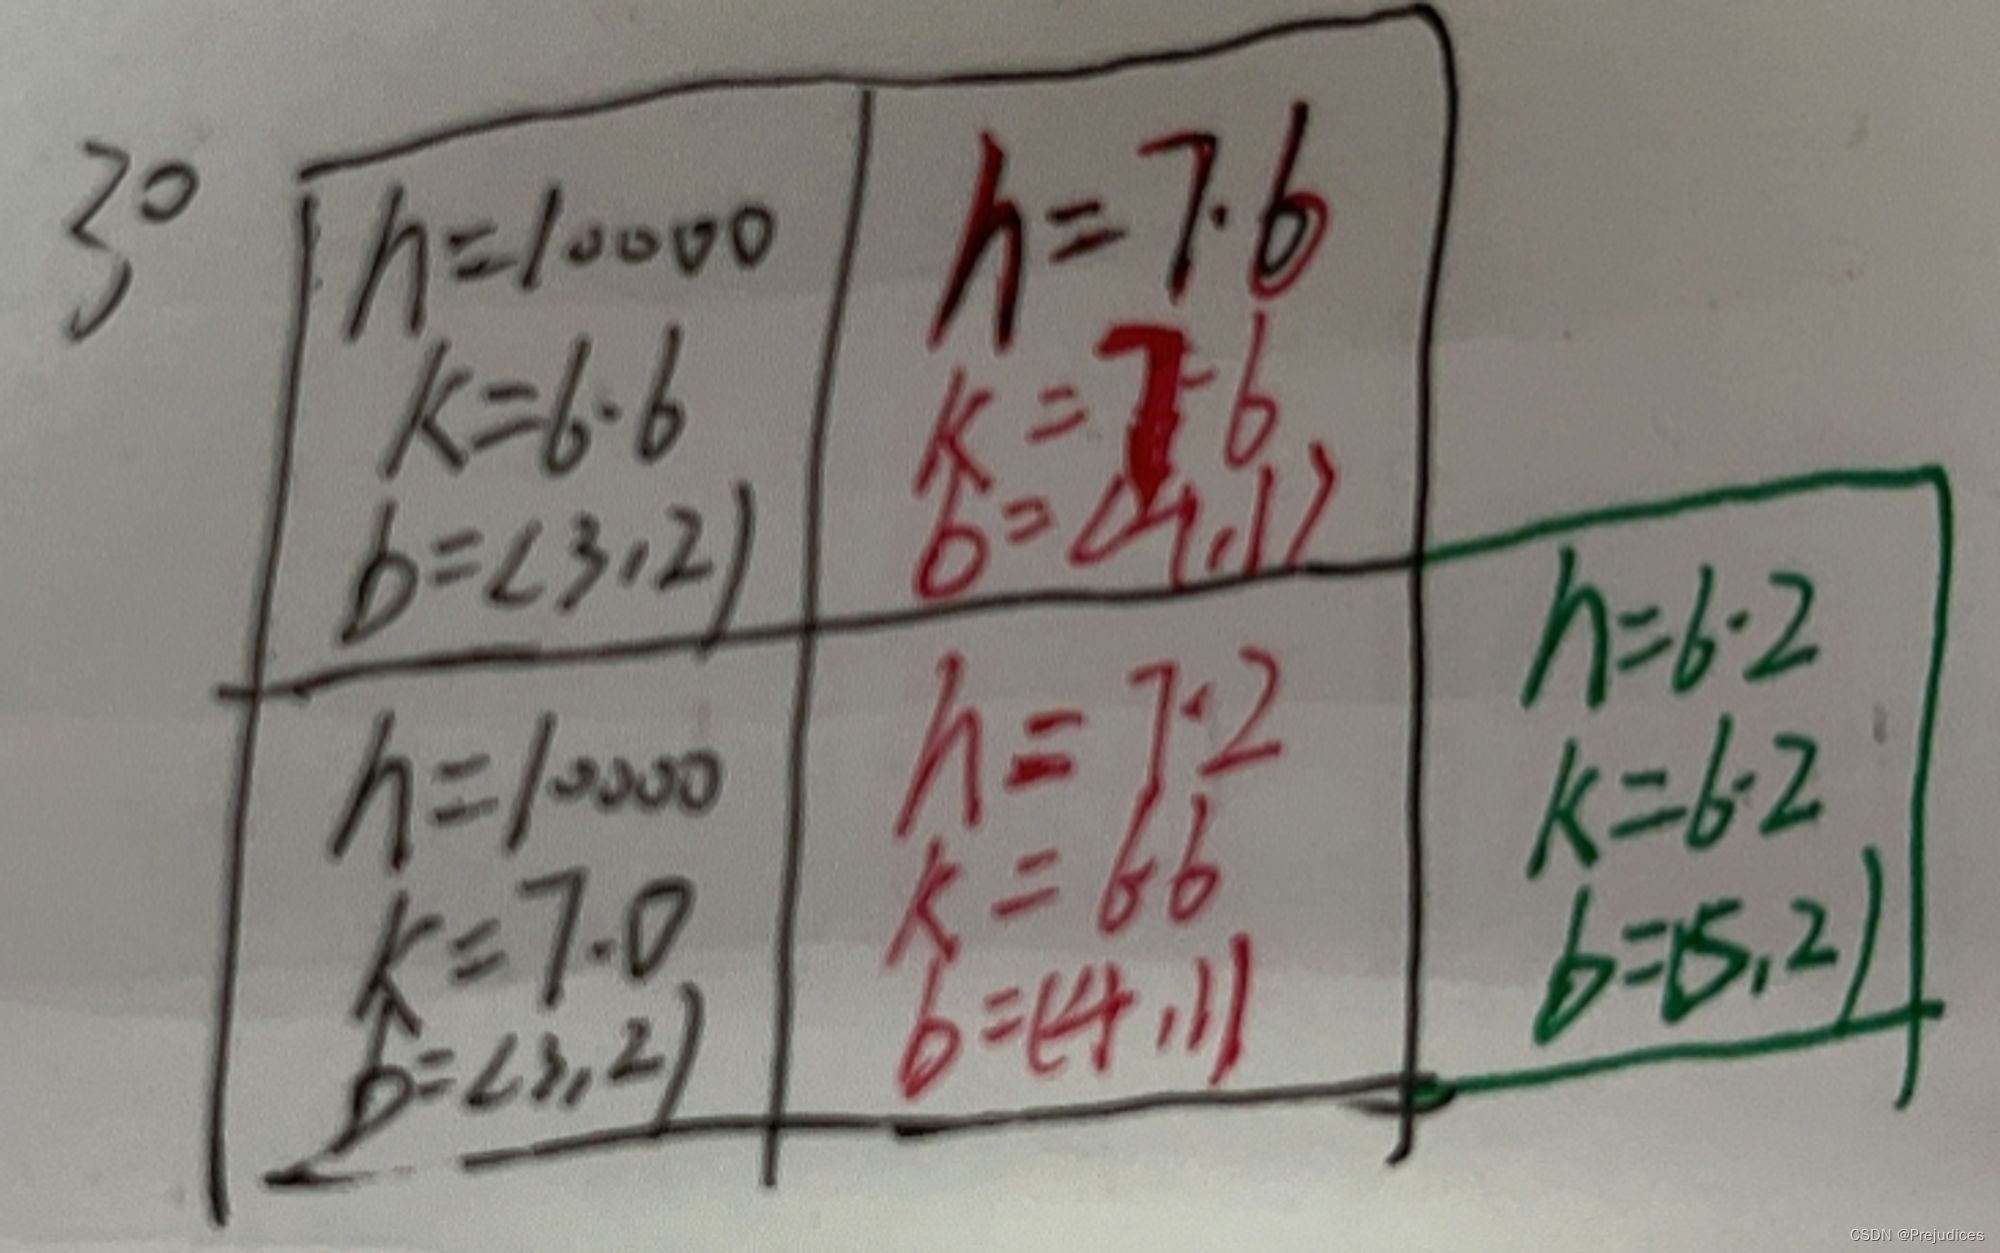 3°
h=10000
k=6.6
b=<3,2)
h=7.6
k=7.6
b=<4,1)
h=10000
k=7.0
b=<3,2)
h=7.2
k=6.6
b=(4,1)
h=6.2
k=6.2
b=(5,2)
CSDN @Prejudices